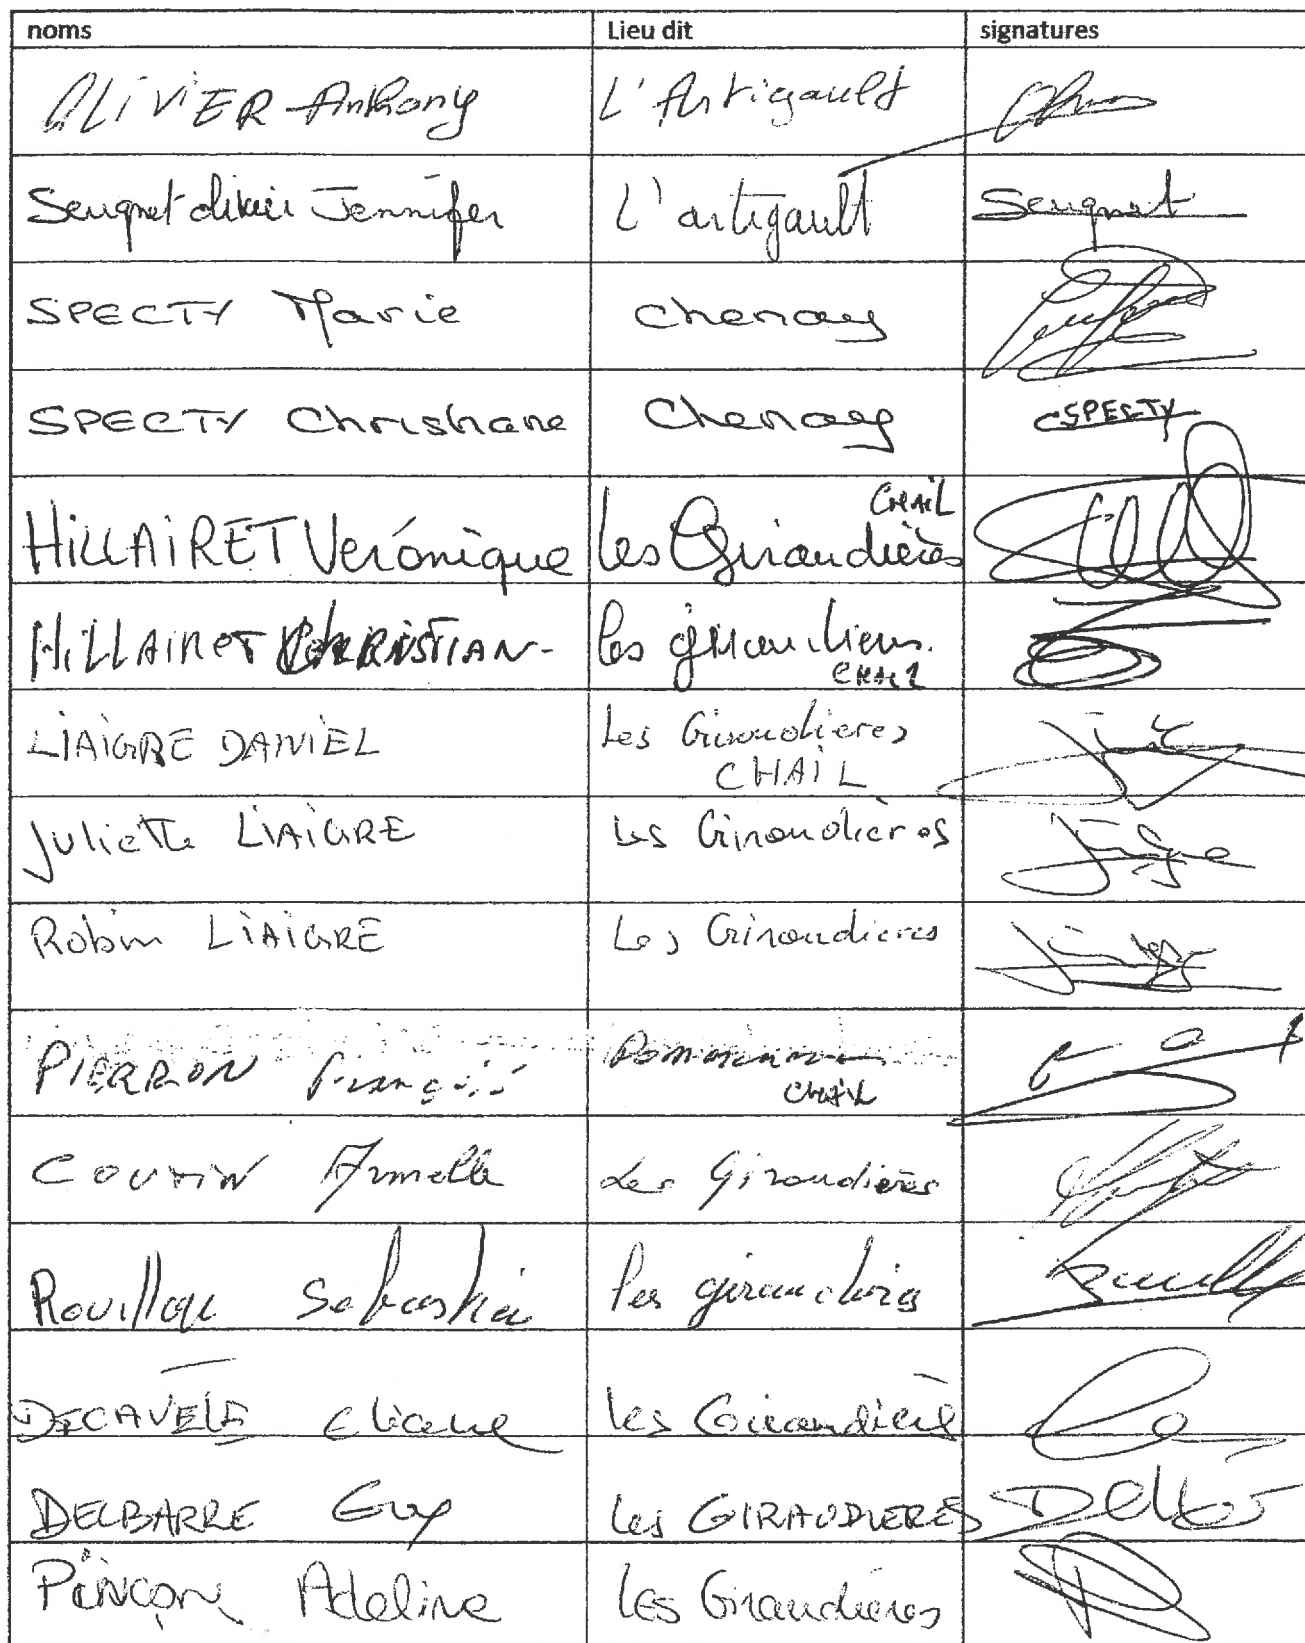 noms Lieu dit signatures
OLIVIER Anthony L'Artigault
Seugnet olivier Jennifer L'artigault Seugnet
SPECTY Marie Chenay
SPECTY Christiane Chenay SPECTY
HILLAIRET Véronique les Giraudières CHAIL
HILLAIRET CHRISTIAN - les giraudieres. CHAIL
LIAIGRE DANIEL Les Giraudieres
CHAIL
Juliette LIAIGRE Les Giraudières
Robin LIAIGRE Les Giraudieres
PIERRON François
CHAIL
COUTIN Armelle Les Giraudières
Rouillon Sebastien les giraudieres
DECAVELE Eliane les Giraudières
DELBARRE Guy les GIRAUDIERES
PINÇON Adeline Les Giraudières